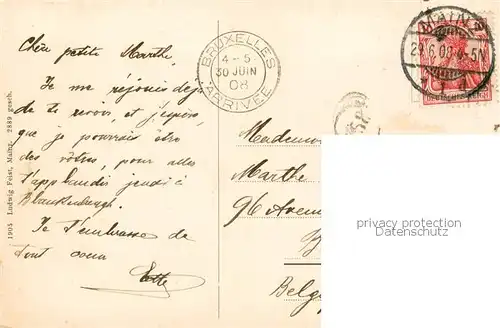 Chère petite Marthe,
Je me réjouis déjà
de te revoir, et j'espère,
que je pourrais être
des vôtres, pour aller
t'applaudir jeudi à
Blankenberghe.
Je t'embrasse de
tout coeur
1904 Ludwig Feist, Mainz. 2889 gesch.
BRUXELLES
4-5
30 JUIN
08
ARRIVÉE
MAINZ
29.6.08
Mademoi
Marthe
96 Avenu
B
Belg
privacy protection
Datenschutz